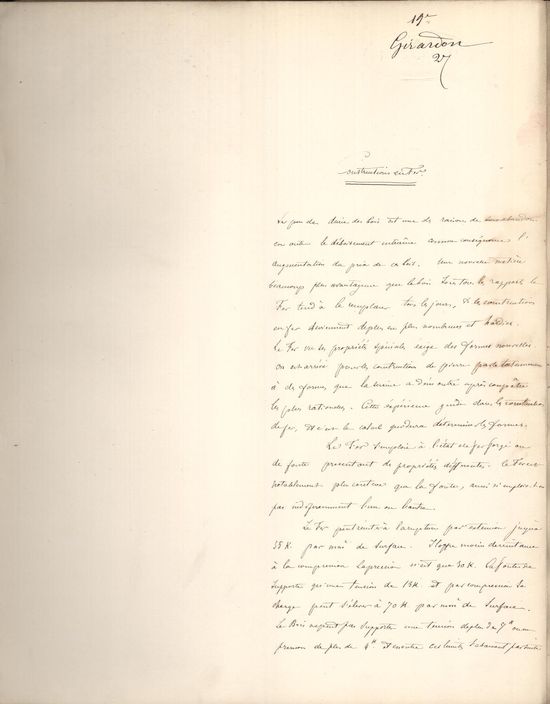 19e
Girardon
27
Constructions en Fer.
Le peu de durée des bois est une des raisons de
on outre le déboisement entraîne comme conséquence l'
augmentation du prix de ce bois. Une nouvelle matière
beaucoup plus avantageuse que le bois sous tous les rapports le
Fer tend à le remplacer tous les jours, & les constructions
en fer deviennent de plus en plus nombreuses et hardies.
Le Fer vu ses propriétés spéciales exige des formes nouvelles
On est arrivé pour les constructions de pierre par le tatonnement
à des formes que la science a démontré après coup être
les plus rationnelles. Cette expérience guide dans les constructions
de fer, & c'est le calcul qui devra déterminer les formes.
Le Fer s'emploie à l'état de fer forgé ou
de fonte présentant des propriétés différentes. Le Fer est
notablement plus couteux que la fonte, aussi n'emploie-t-on
pas indifféremment l'un ou l'autre.
Le Fer peut résister à la rupture par extension jusqu'à
35 K. par mm² de surface. Il offre moins de résistance
à la compression la pression n'est que 30 K. La fonte ne
supporte qu'une tension de 13 K. et par compression la
charge peut s'élever à 70 K par mm² de surface.
Le Bois ne peut pas supporter une tension de plus de 7K
pression de plus de 4K et encore ces limites